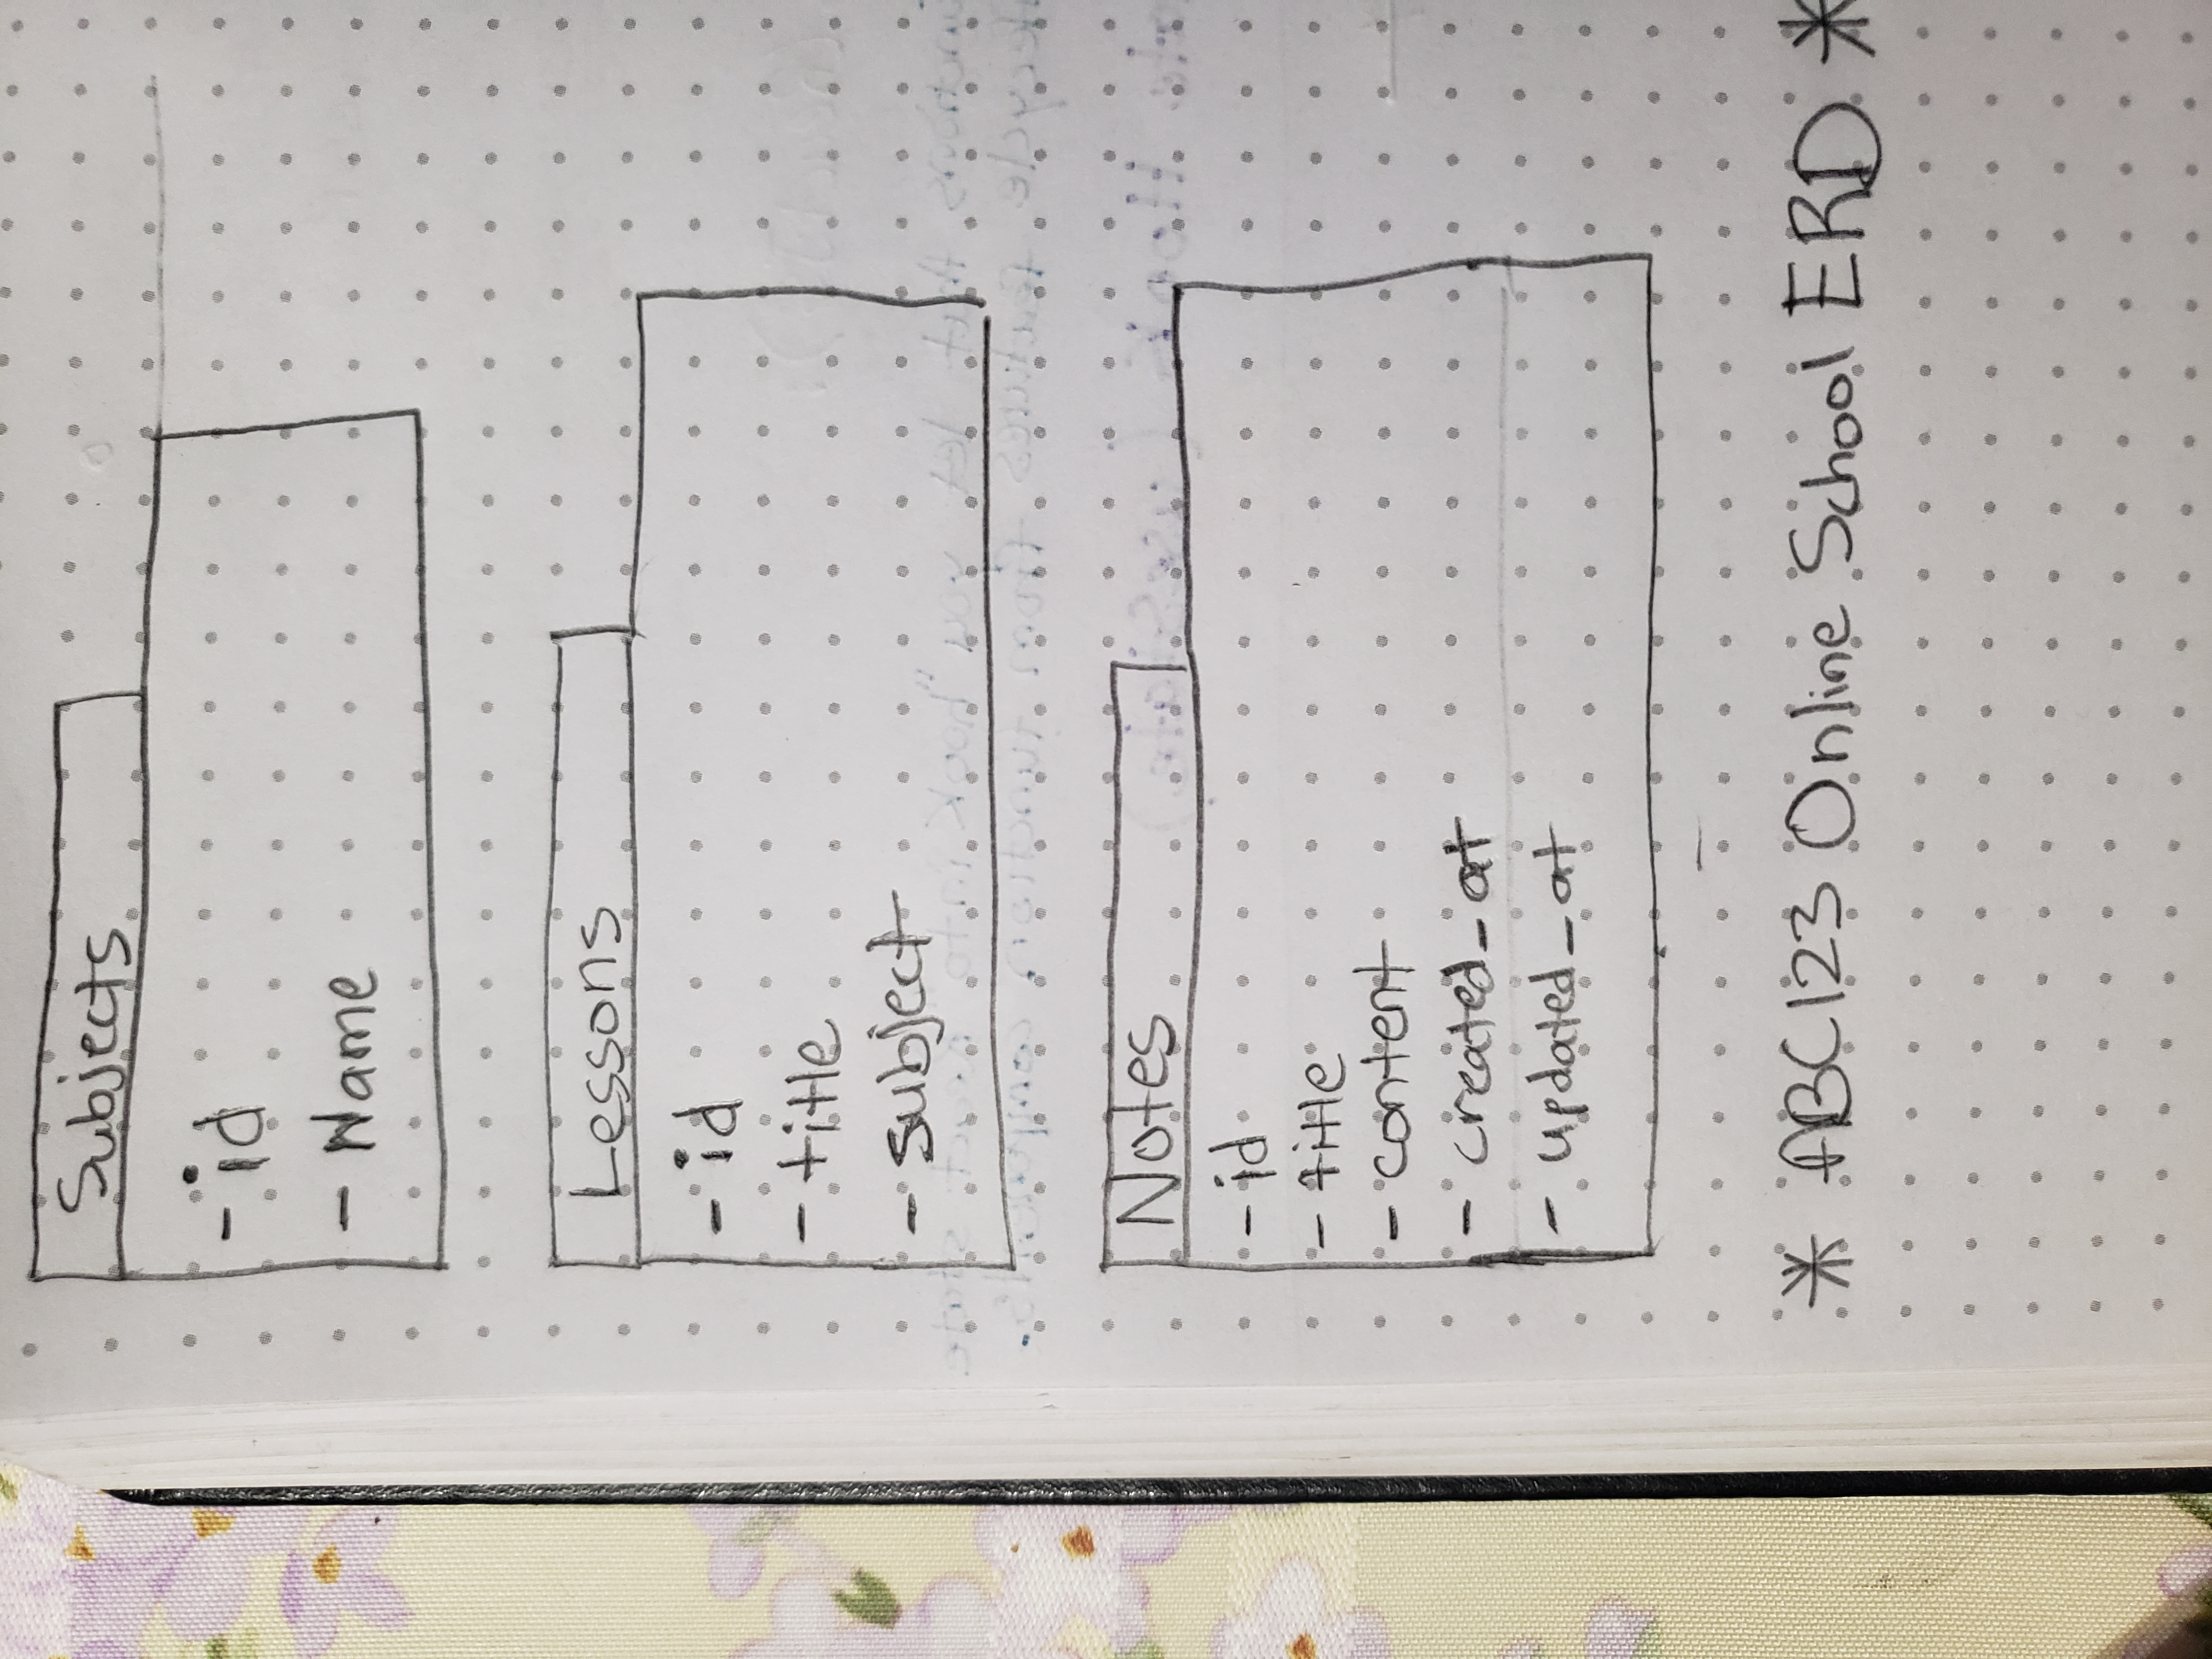 Subjects
- id
- Name
Lessons
- id
- title
- subject
Notes
- id
- title
- content
- created_at
- updated_at
* ABC123 Online School ERD *